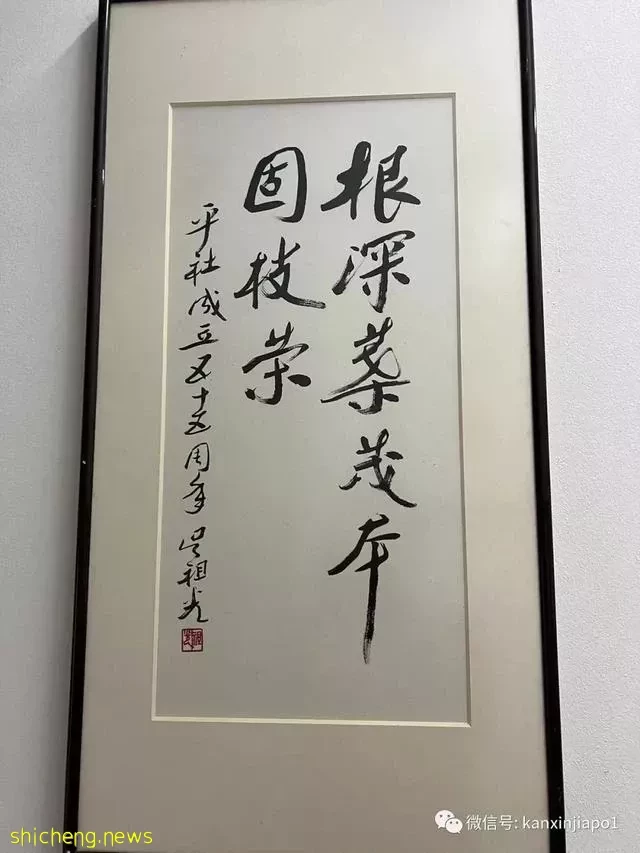 根深葉茂本
固枝荣
平社成立五十五周年 吴祖光
微信号: kanxinjiapo1
shicheng.news